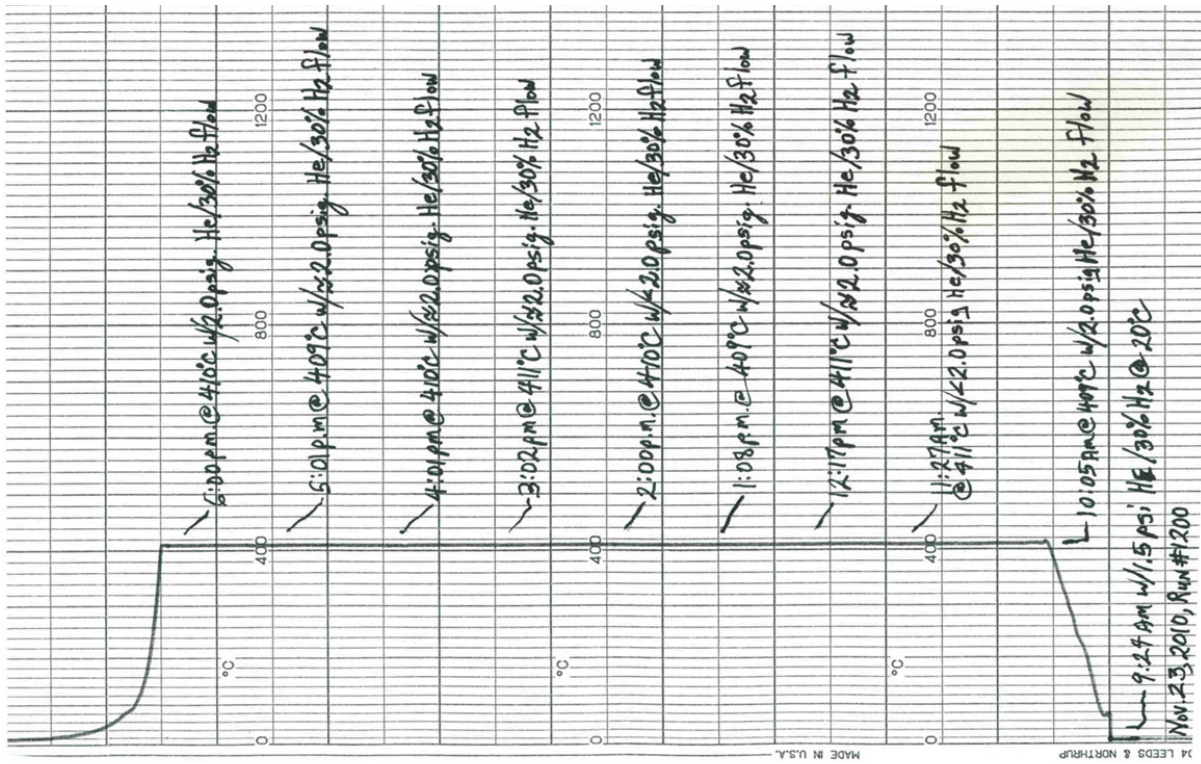 6:00pm@410°C w/2.0psig. He/30% H2 flow
5:01p.m@409°C w/≈2.0psig. He/30% H2 flow
4:01pm@410°C w/≈2.0psig. He/30% H2 flow
3:02pm@411°C w/≈2.0psig. He/30% H2 flow
2:00p.m.@410°C w/<2.0psig. He/30% H2 flow
1:08p.m.@409°C w/≈2.0psig. He/30% H2 flow
12:17pm@411°C w/≈2.0psig. He/30% H2 flow
11:27AM.
@411°C w/<2.0psig He/30% H2 flow
10:05AM@409°C w/2.0psig He/30% H2 flow
9:24AM w/1.5 psi HE/30% H2@20°C
Nov. 23, 2010, Run#1200
0 °C 400 800 1200
0 °C 400 800 1200
0 °C 400 800 1200
MADE IN U.S.A.
04 LEEDS & NORTHRUP